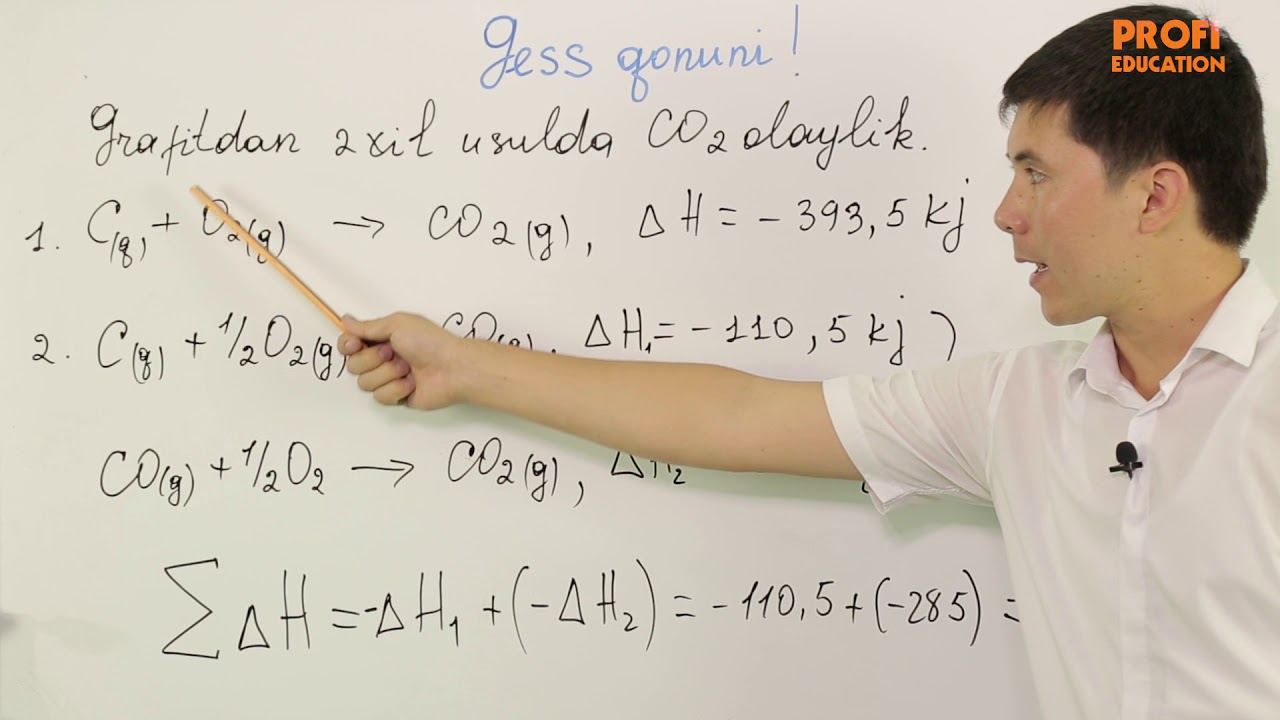 PROFI
EDUCATION
Gess qonuni!
Grafitdan 2 xil usulda CO2 olaylik.
1. C(q) + O2(g) → CO2(g), ΔH = - 393,5 kj
2. C(q) + 1/2O2(g) CO(g), ΔH1 = - 110,5 kj )
CO(g) + 1/2O2 → CO2(g), ΔH2
∑ΔH = -ΔH1 + (-ΔH2) = - 110,5 + (-285) =